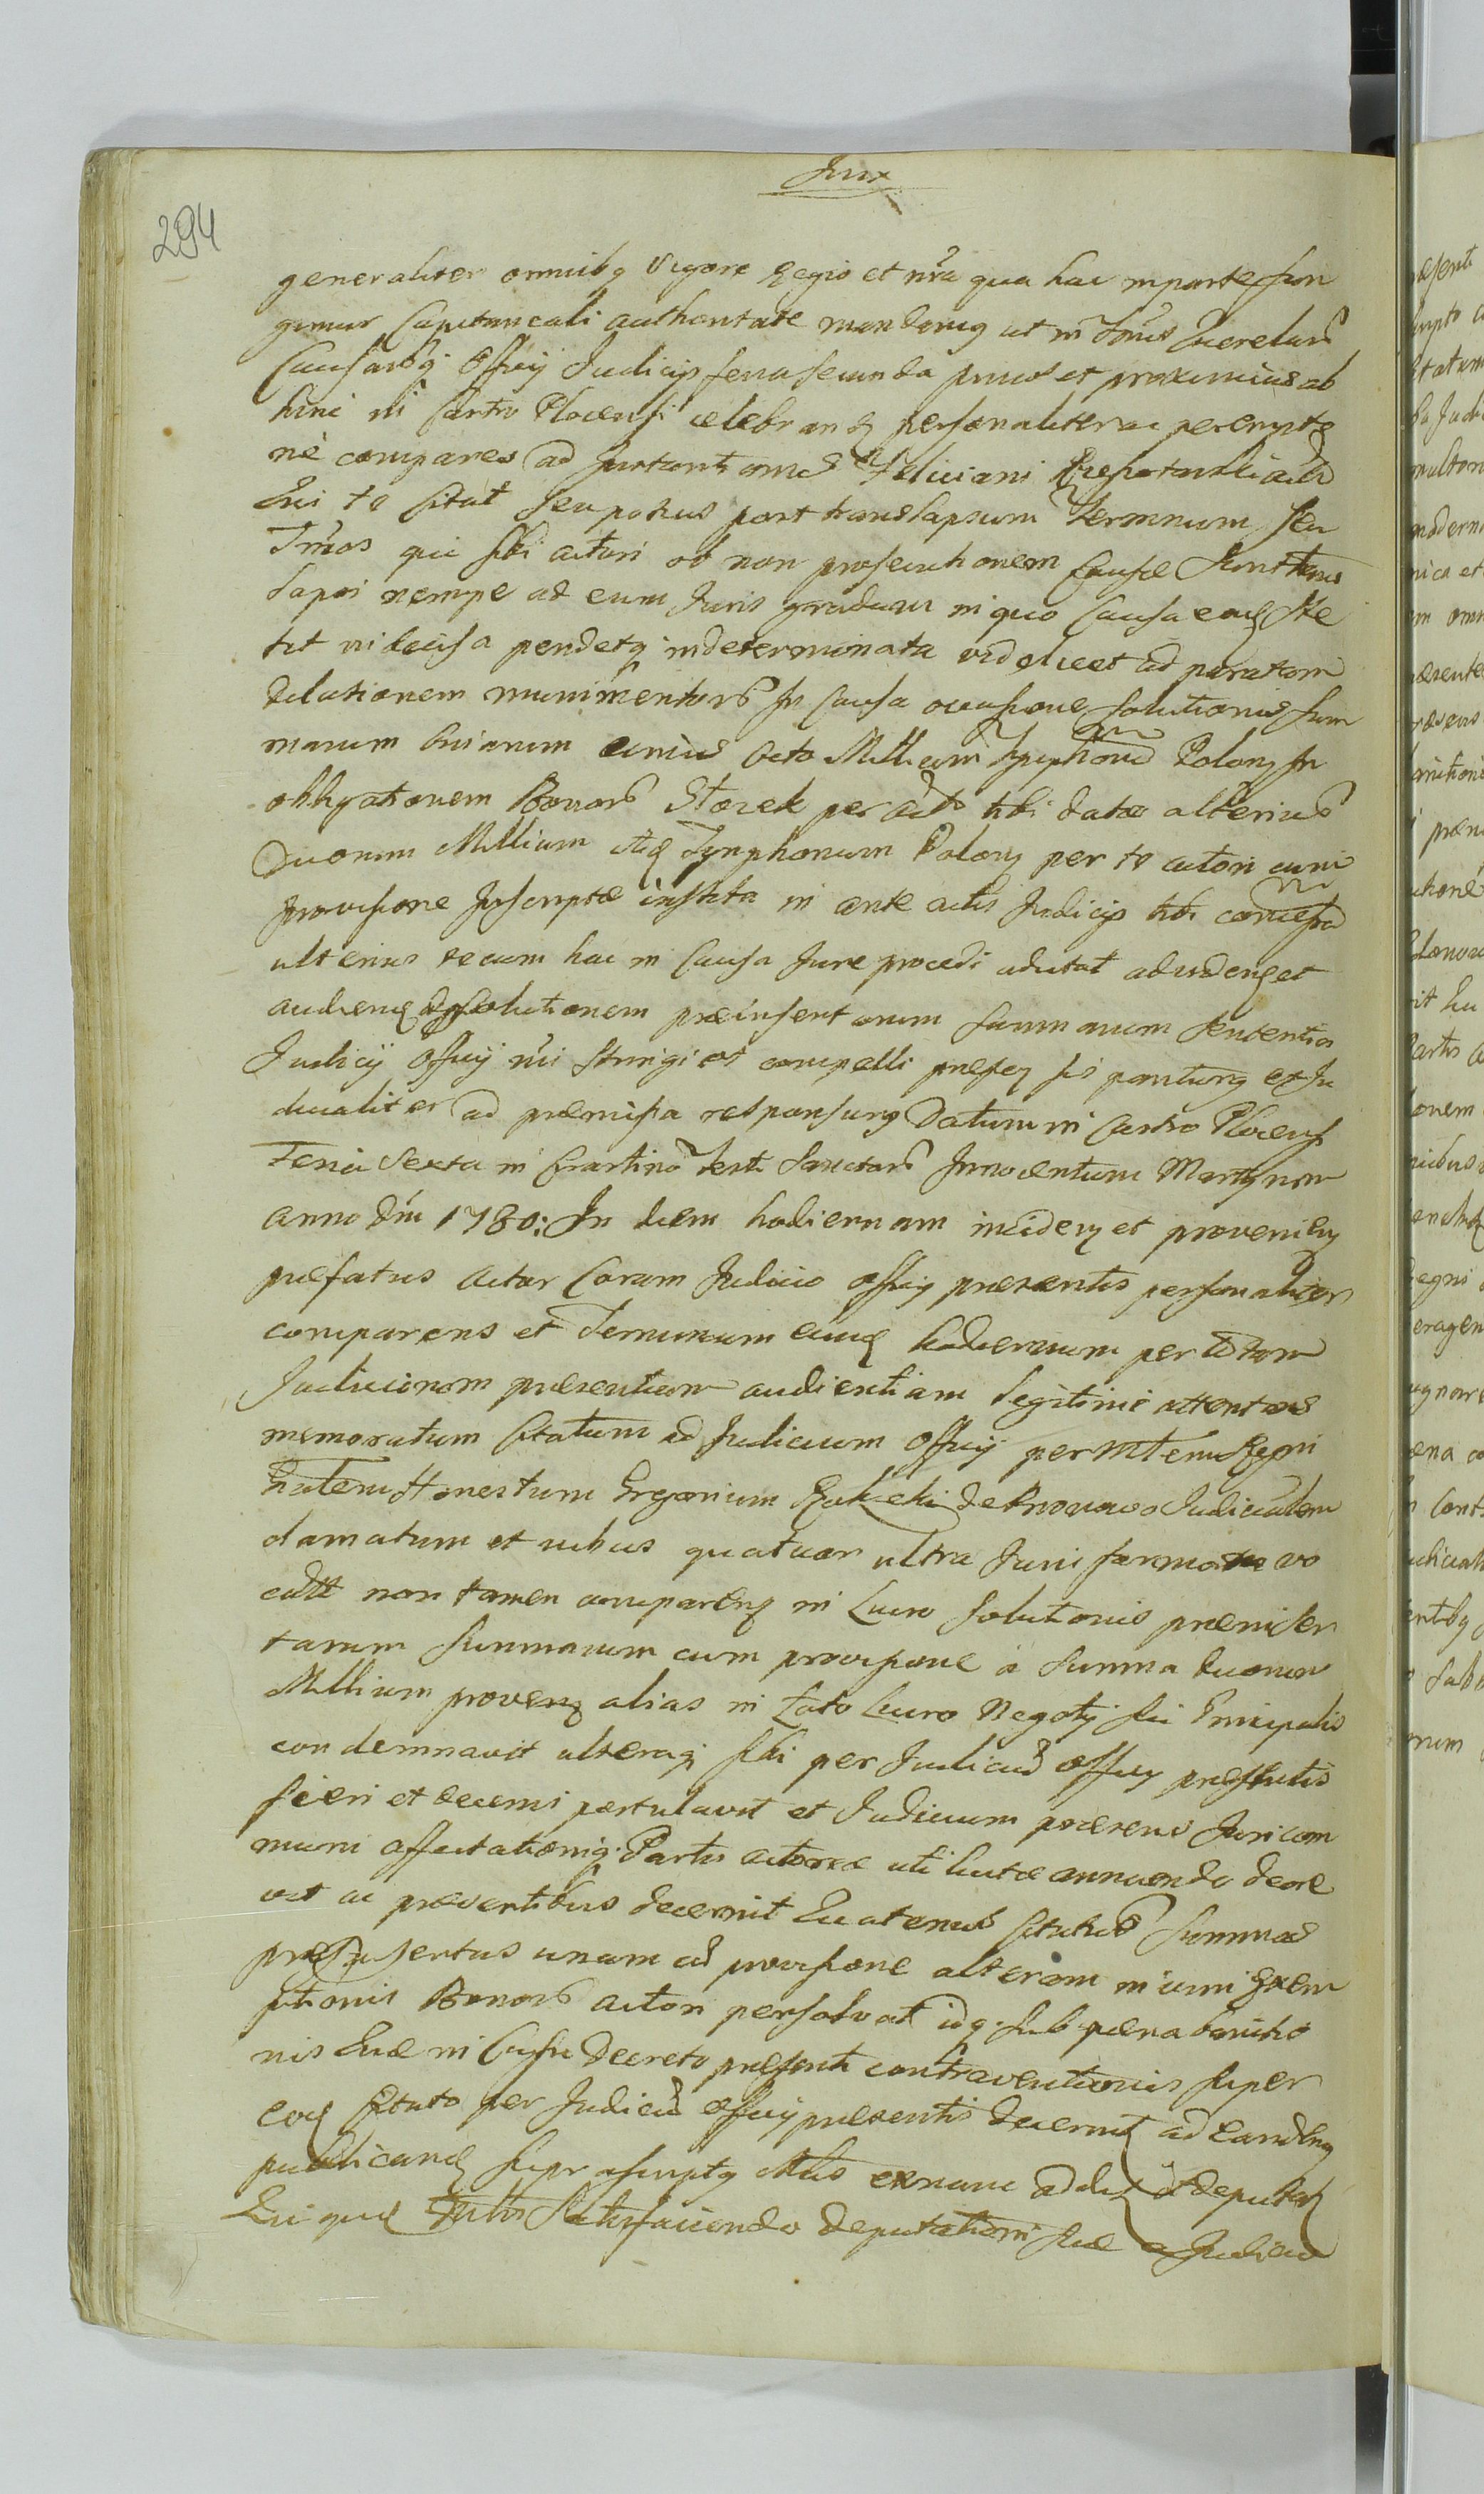 Jux
294
generaliter omnibq Vigore Regio et nrã qua hac in parte fun
gimur Capitaneali authoritate mandamq ut in Tmis Querelars
Causarūq Officij Judicijs feria secunda primo et proximius ab
hinc in Castro Plocensi celebrandq personaliter ac perempto
riè compares ad Instantiam Feliciani actoris
Qui te Citat seu potius post translapsum Terminum seu
Tmos qui sibi actori ob non prosecutionem Causæ
lapsi nempe ad eum Juris gradum in quo Causa eadq ste
tit indecisa pendetq indeterminata videlicet ad paratam
dilationem munimentors In Causa occasione solutionis Sum
marum binarum unius Octo Millium Tynphonū Polonq In
obligationem Bonors Storek per actorē tibi datæ alterius
Duorum Millium itidq Tynphonum Polonq per te actori cum
provisione Inscriptæ instituta in ante actis Judicijs tibi
ulterius tecum hac in Causa Jure procedi adcitat ad videnq et
audienq solutionem præinsertarum Summarum Sententia
Judicij Officij nri stringi et compelli præsq sis pariturq et Ju
dicialiter ad præmissa responsurq Datum in Castro Plocensi
Feria Sexta in Crastino Festi Sanctors Innocentium Martyrum
Anno Dni 1780: In diem hodiernam incidenq et provenienq
præfatus Actor Coram Judicio Officij præsentis personaliter
comparens et Terminum eundq hodiernum per totam
Judiciorum præsentium audientiam legitimè attentans
memoratum Citatum ad Judicium Officij per Mtem Regni
Gñlem Honestum Gregorium de Judicialem
clamatum et vicibus quatuor ultra Juris formam vo
catū non tamen comparenq in Lucro solutionis præinser
tarum Summarum cum provisione à Summa duorum
Millium provenq alias in toto Lucro Negotij sui Principalis
condemnavit ulteriusq sibi per Judiciū Officij præsentis
fieri et decerni postulavit et Judicium præsens Juri com
muni affectationiq Partis actoreæ uti licitæ annuendo decre
vit ac præsentibus decernit Quatenus Citatus Summas
præinsertas unam cū provisione alteram in vim Exem
ptionis Bonors actori persolvat idq sub pæna bannitio
nis Quæ in Casu Decreto præsenti contraventionis super
eodq Citato per Judiciū Officij præsentis decernitq ad eandemq
publicandq suprascriptq Mtis exnunc additq et deputatq
Quiquidq Mtlis satisfaciendo deputationi suæ a Judicio